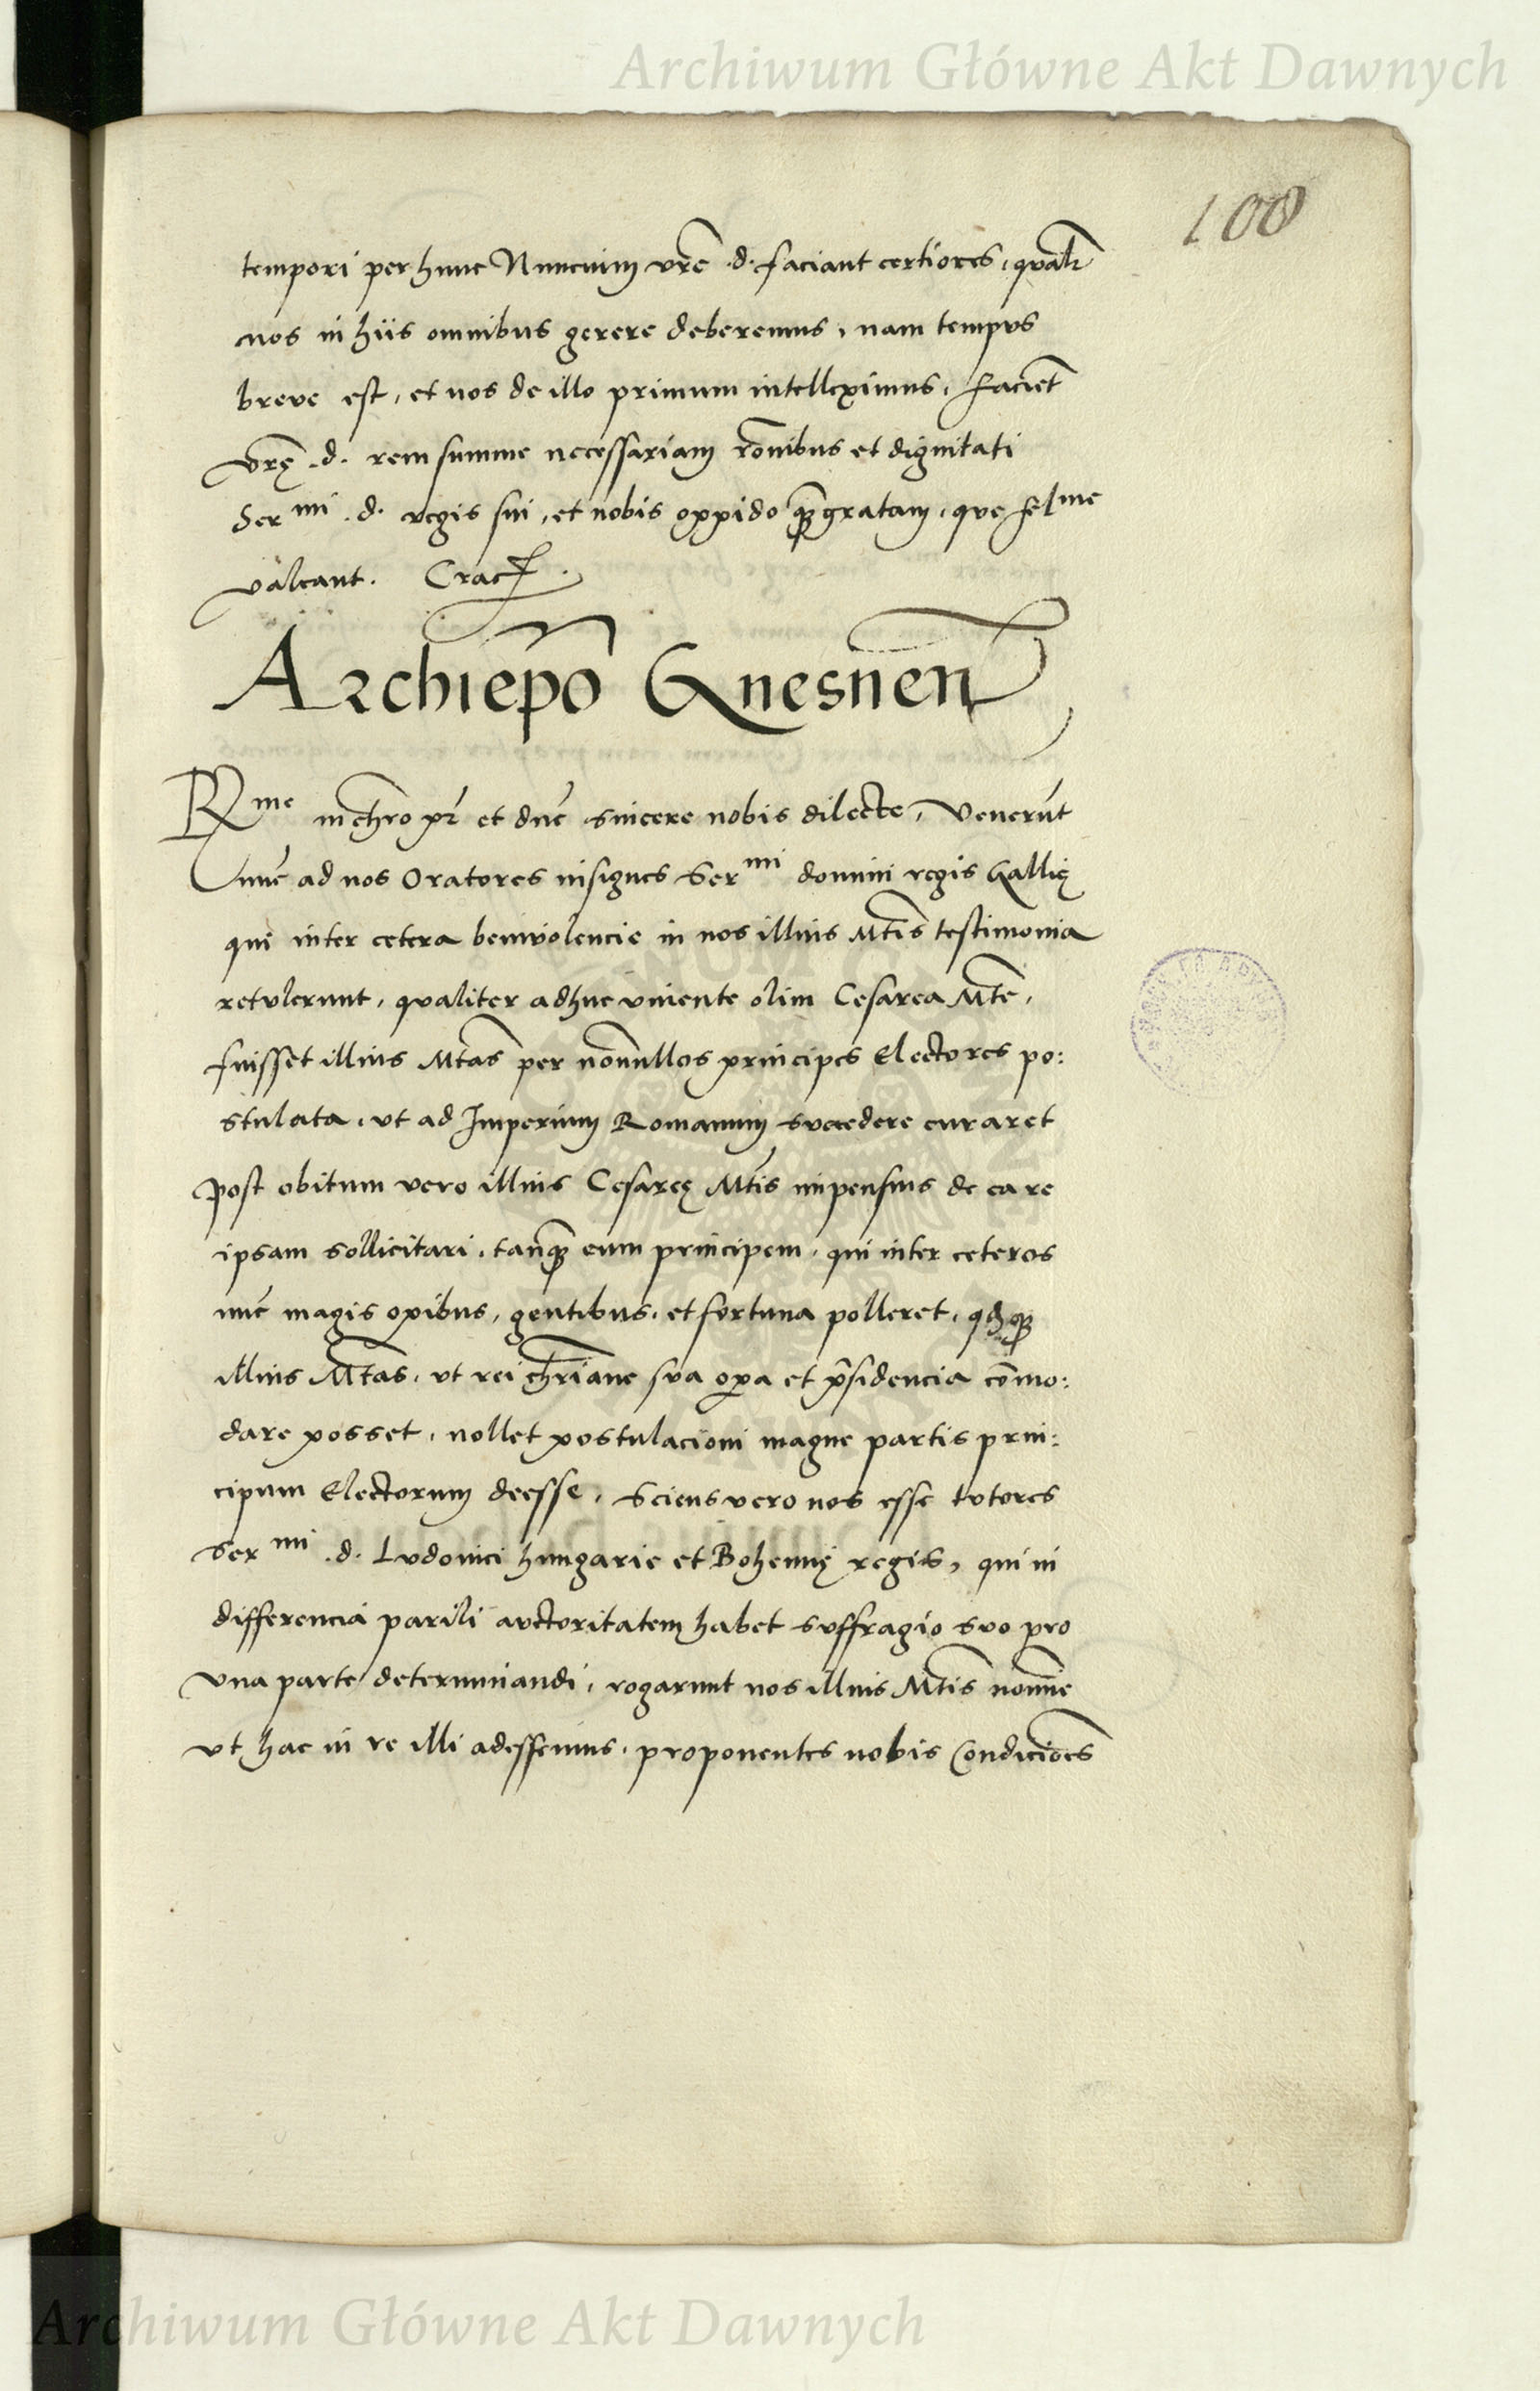 Archiwum Główne Akt Dawnych
108
tempori per hunc Nuncium vrē .d. faciant certiores, qualr
nos in hiis omnibus gerere deberemus, nam tempus
breve est, et nos de illo primum intelleximus, faciēt
Vrę .d. rem summe necessariam rōnibus et dignitati
Ser mi .d. regis sui, et nobis oppido qȝ gratam, que fel me
valeant. Crac.
Archiepō Gnesnen
R me in chro pr et dne sincere nobis dilecte, Venerūt
nūc ad nos Oratores insignes Ser mi domini regis Gallię
qui inter cetera benivolencie in nos illius Mtis testimonia
retulerunt, qualiter adhuc vivente olim Cesarea Mte,
fuisset illius Mtas per nonnullos principes Electores po:
stulata, ut ad Imperium Romanum succedere curaret
post obitum vero illius Cesaręę Mtis impensius de ea re
ipsam sollicitari, tanqȝ eum principem, qui inter ceteros
nūc magis opibus, gentibus, et fortuna polleret,
illius Mtas, ut rei chriane sua opa et psidencia cōmo:
dare posset, nollet postulacioni magne partis prin:
cipum Electorum deesse, Sciens vero nos esse tutores
Ser mi .d. Ludovici hungarie et Bohemię regis, qui in
differencia parili auctoritatem habet suffragio suo pro
una parte determinandi, rogarunt nos illius Mtis nomine
ut hac in re illi adessemus, proponentes nobis Condiciōes
Archiwum Główne Akt Dawnych